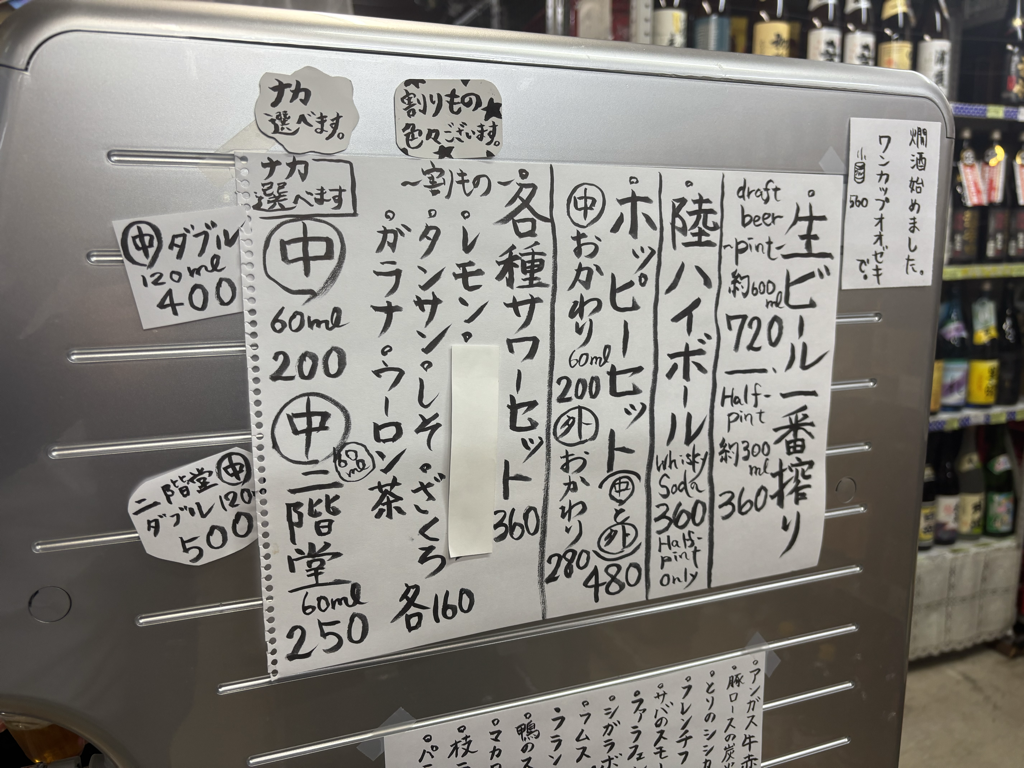 ナカ
選べます。
割りもの
色々ございます。
燗酒始めました。
ワンカップオオゼキ
で。
560
生ビール一番搾り
draft
beer
~pint~
約600ml
720
Half-
pint
約300
ml
360
陸ハイボール
Whisky
Soda
360
Half-
pint
only
ホッピーセット
中と外
480
中おかわり
60ml
200
外おかわり
280
各種サワーセット
360
~割りもの~
・レモン・
・タンサン・しそ・ざくろ
・ガラナ・ウーロン茶
各160
ナカ
選べます
中
60ml
200
中
二階堂
60ml
250
中ダブル
120ml
400
二階堂中
ダブル120
500
・アンガス牛赤
・豚ロースの炭火
・とりのシシカ
・フレンチフ
・サバのスモー
・ファラフェ
・シガラボ
・フムス
・ラララン
・鴨のス
・マカロ
・枝
・パ